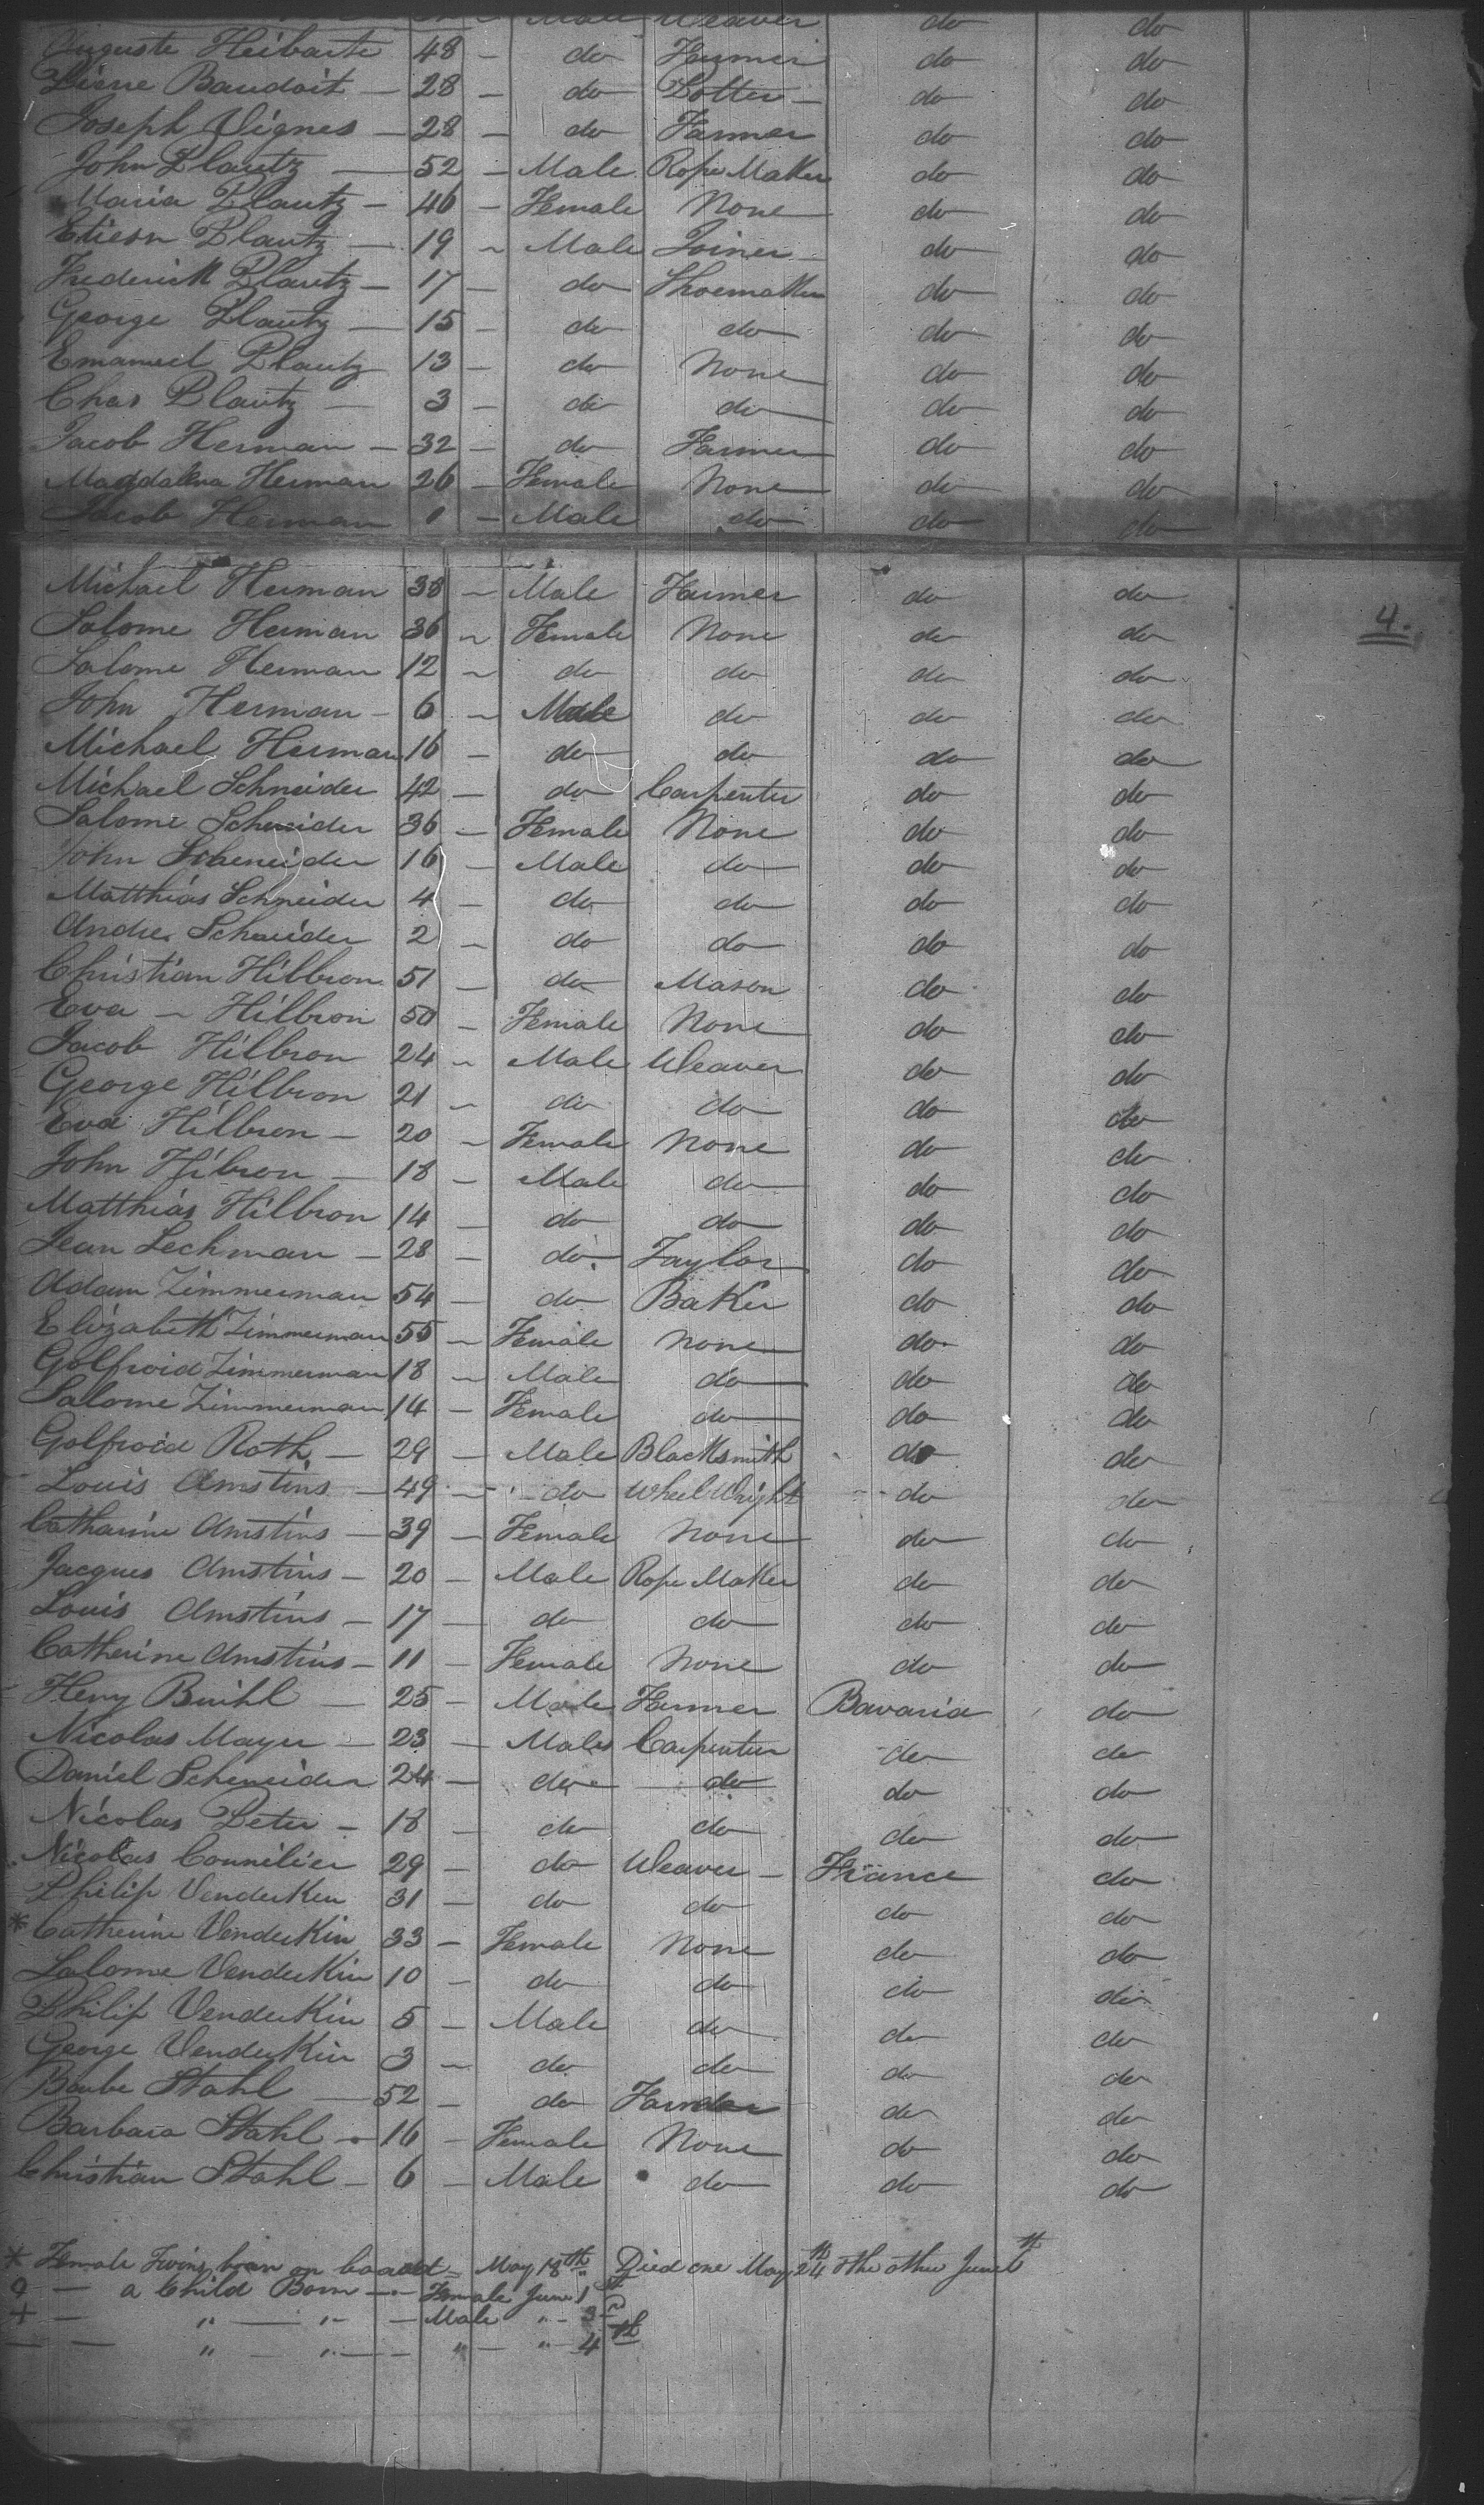 Male Weaver do do
Auguste Heibarte 48 - do Farmer do do
Pierre Baudoit - 28 - do Potter - do do
Joseph Vignes - 28 - do Farmer do do
John Plautz - 52 - Male Rope Maker do do
Maria Plautz - 46 - Female None do do
Etiesn Plautz - 19 - Male Joiner - do do
Frederick Plautz - 17 - do Shoemaker do do
George Plautz - 15 - do do do do
Emanuel Plautz 13 - do None do do
Chas Plautz - 3 - do do do do
Jacob Herman - 32 - do Farmer do do
Magdalena Herman 26 - Female None do do
Jacob Herman 1 - Male do do do
Michael Herman 38 - Male Farmer do do
4.
Salome Herman 36 - Female None do do
Salome Herman 12 - do do do do
John Herman - 6 - Male do do do
Michael Herman 16 - do do do do
Michael Schneider 42 - do Carpenter do do
Salome Schneider 36 - Female None do do
John Scheneider 16 - Male do do do
Matthias Schneider 4 - do do do do
Andre Schneider 2 - do do do do
Christian Hilbron 51 - do Mason do do
Eva - Hilbron 50 - Female None do do
Jacob Hilbron 24 - Male Weaver do do
George Hilbron 21 - do do do do
Eva Hilbron - 20 - Female None do do
John Hibron - 18 - Male do do do
Matthias Hilbron 14 - do do do do
Jean Lechman - 28 - do Taylor do do
Adam Zimmerman 54 - do Baker do do
Elizabeth Zimmerman 55 - Female None do do
Golfroid Zimmerman 18 - Male do do do
Salome Zimmerman 14 - Female do do do
Golfroid Roth - 29 - Male Blacksmith do do
Louis Amstins - 49 - do Wheel Wright do do
Catharine Amstins - 39 - Female None do do
Jacques Amstins - 20 - Male Rope Maker do do
Louis Amstins - 17 - do do do do
Catherine Amstins - 11 - Female None do do
Heny Buihl - 25 - Male Farmer Bavaria do
Nicolas Mayer - 23 - Male Carpenter do do
Daniel Scheneider 24 - do do do do
Nicolas Peter - 18 - do do do do
Nicolas Connilier 29 - do Weaver - France do
Philip Venderkin 31 - do do do do
* Catherine Venderkin 33 - Female None do do
Salome Venderkin 10 - do do do do
Philip Venderkin 5 - Male do do do
George Venderkin 3 - do do do do
Baube Stahl - 52 - do Farmer do do
Barbara Stahl - 16 - Female None do do
Christian Stahl - 6 - Male do do do
* Female Twins born on board - May 18th Died one May 24th & the other June 6th
- a Child Born - Female June 1st
+ - " - " - Male " - 3d
- - " - " - " - " - 4th